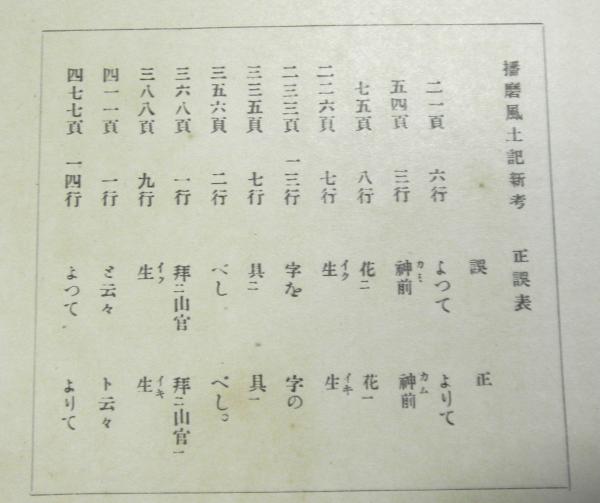 播磨風土記新考　正誤表
誤　正
二一頁　六行　よつて　よりて
五四頁　三行　神前カミ　神前カム
七五頁　八行　花ニ　花一
二二六頁　七行　生イク　生イキ
二三三頁　一三行　字を　字の
三三五頁　七行　具ニ　具一
三五六頁　二行　べし　べし。
三六八頁　一行　拜ニ山官　拜ニ山官一
三八八頁　九行　生イク　生イキ
四一一頁　一行　と云々　ト云々
四七七頁　一四行　よつて　よりて